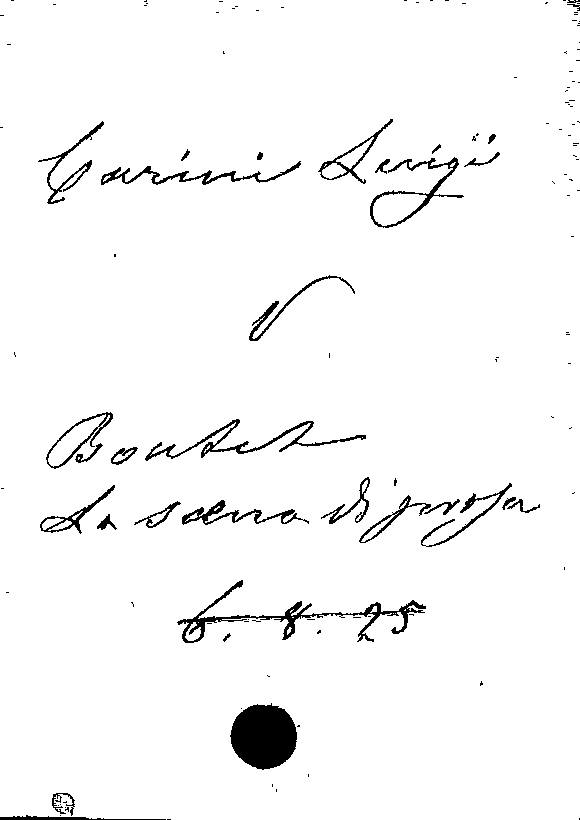 Carini Luigi
V
Boutet
La scena di prosa
6. 8. 25